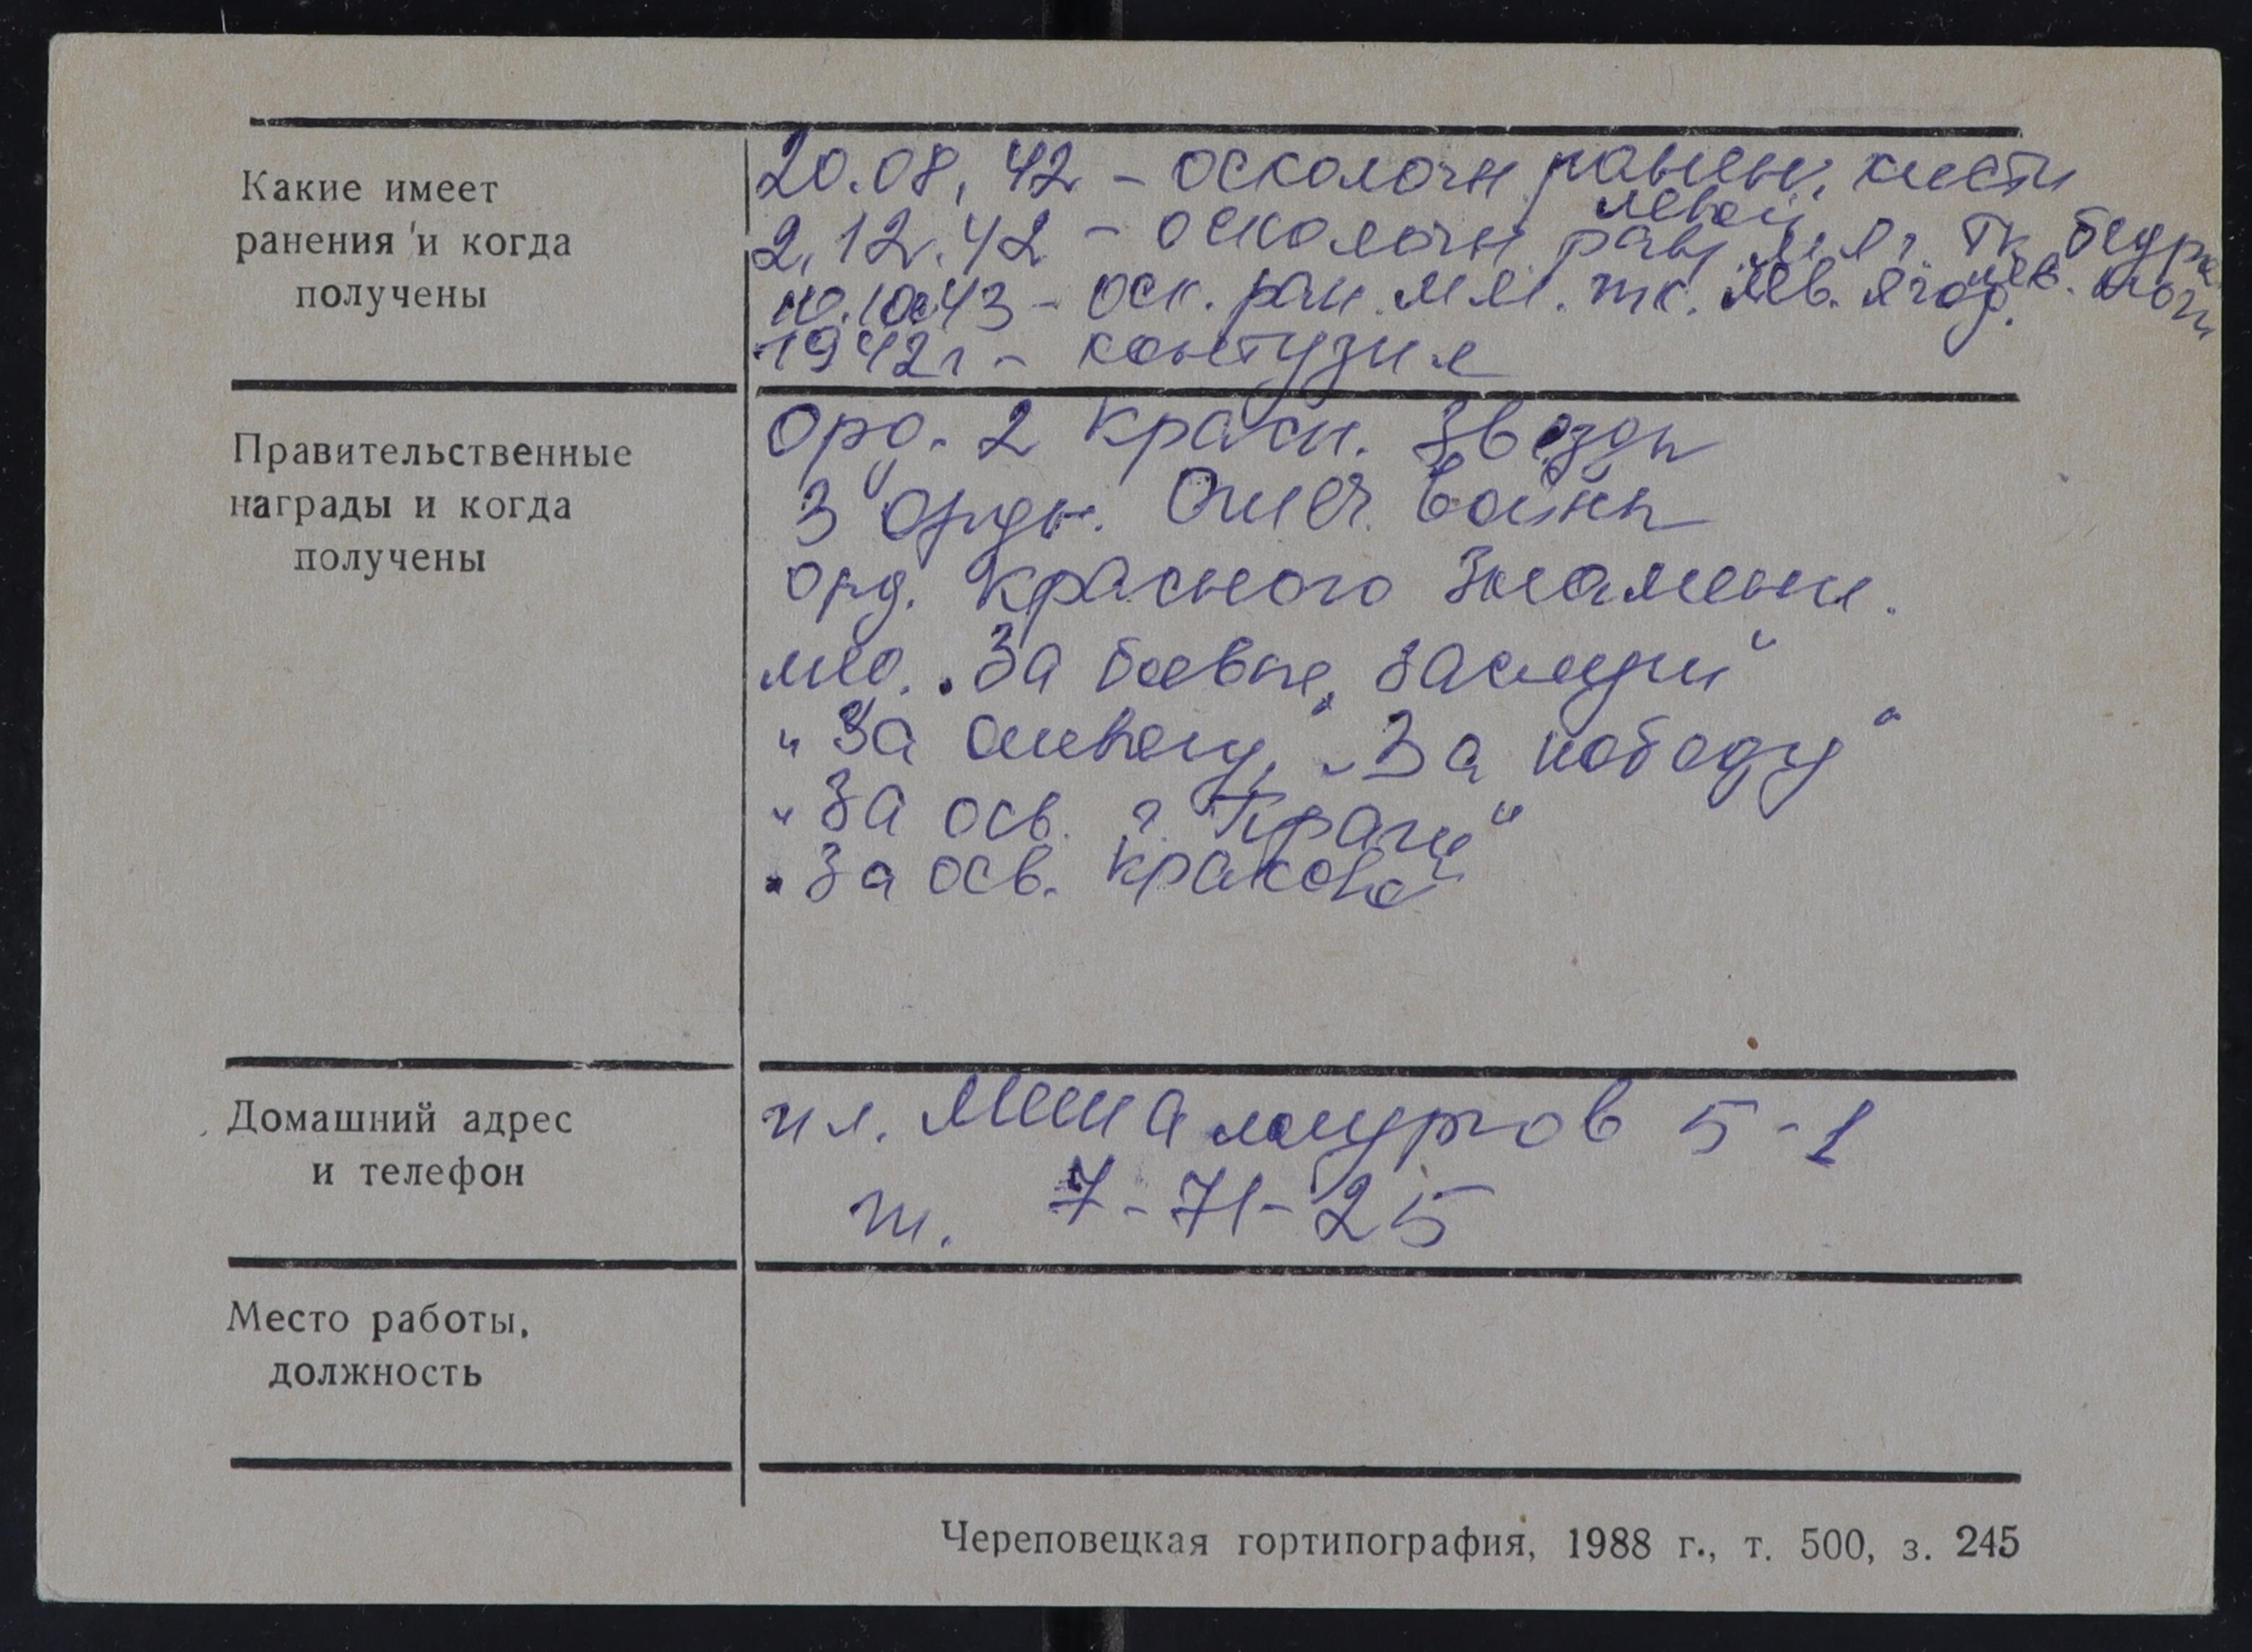 Какие имеет
ранения и когда
получены
20.08.42 - осколочн ранен. кисти
левой
2.12.42 - осколочн ран мяг. тк. бедра
лев. ноги
10.10.43 - оск. ран. мяг. тк. лев. ягод.
1942г - контузия
Правительственные
награды и когда
получены
Орд. 2 Красн. Звезды
3 Орды. Отеч. Войны
Орд. Красного Знамени.
мед. "За боевые заслуги"
"За отвагу", "За победу"
"За осв. г. Праги"
"За осв. Кракова"
Домашний адрес
и телефон
пл. Металлургов 5-1
т. 7-71-25
Место работы,
должность
Череповецкая гортипография, 1988 г., т. 500, з. 245